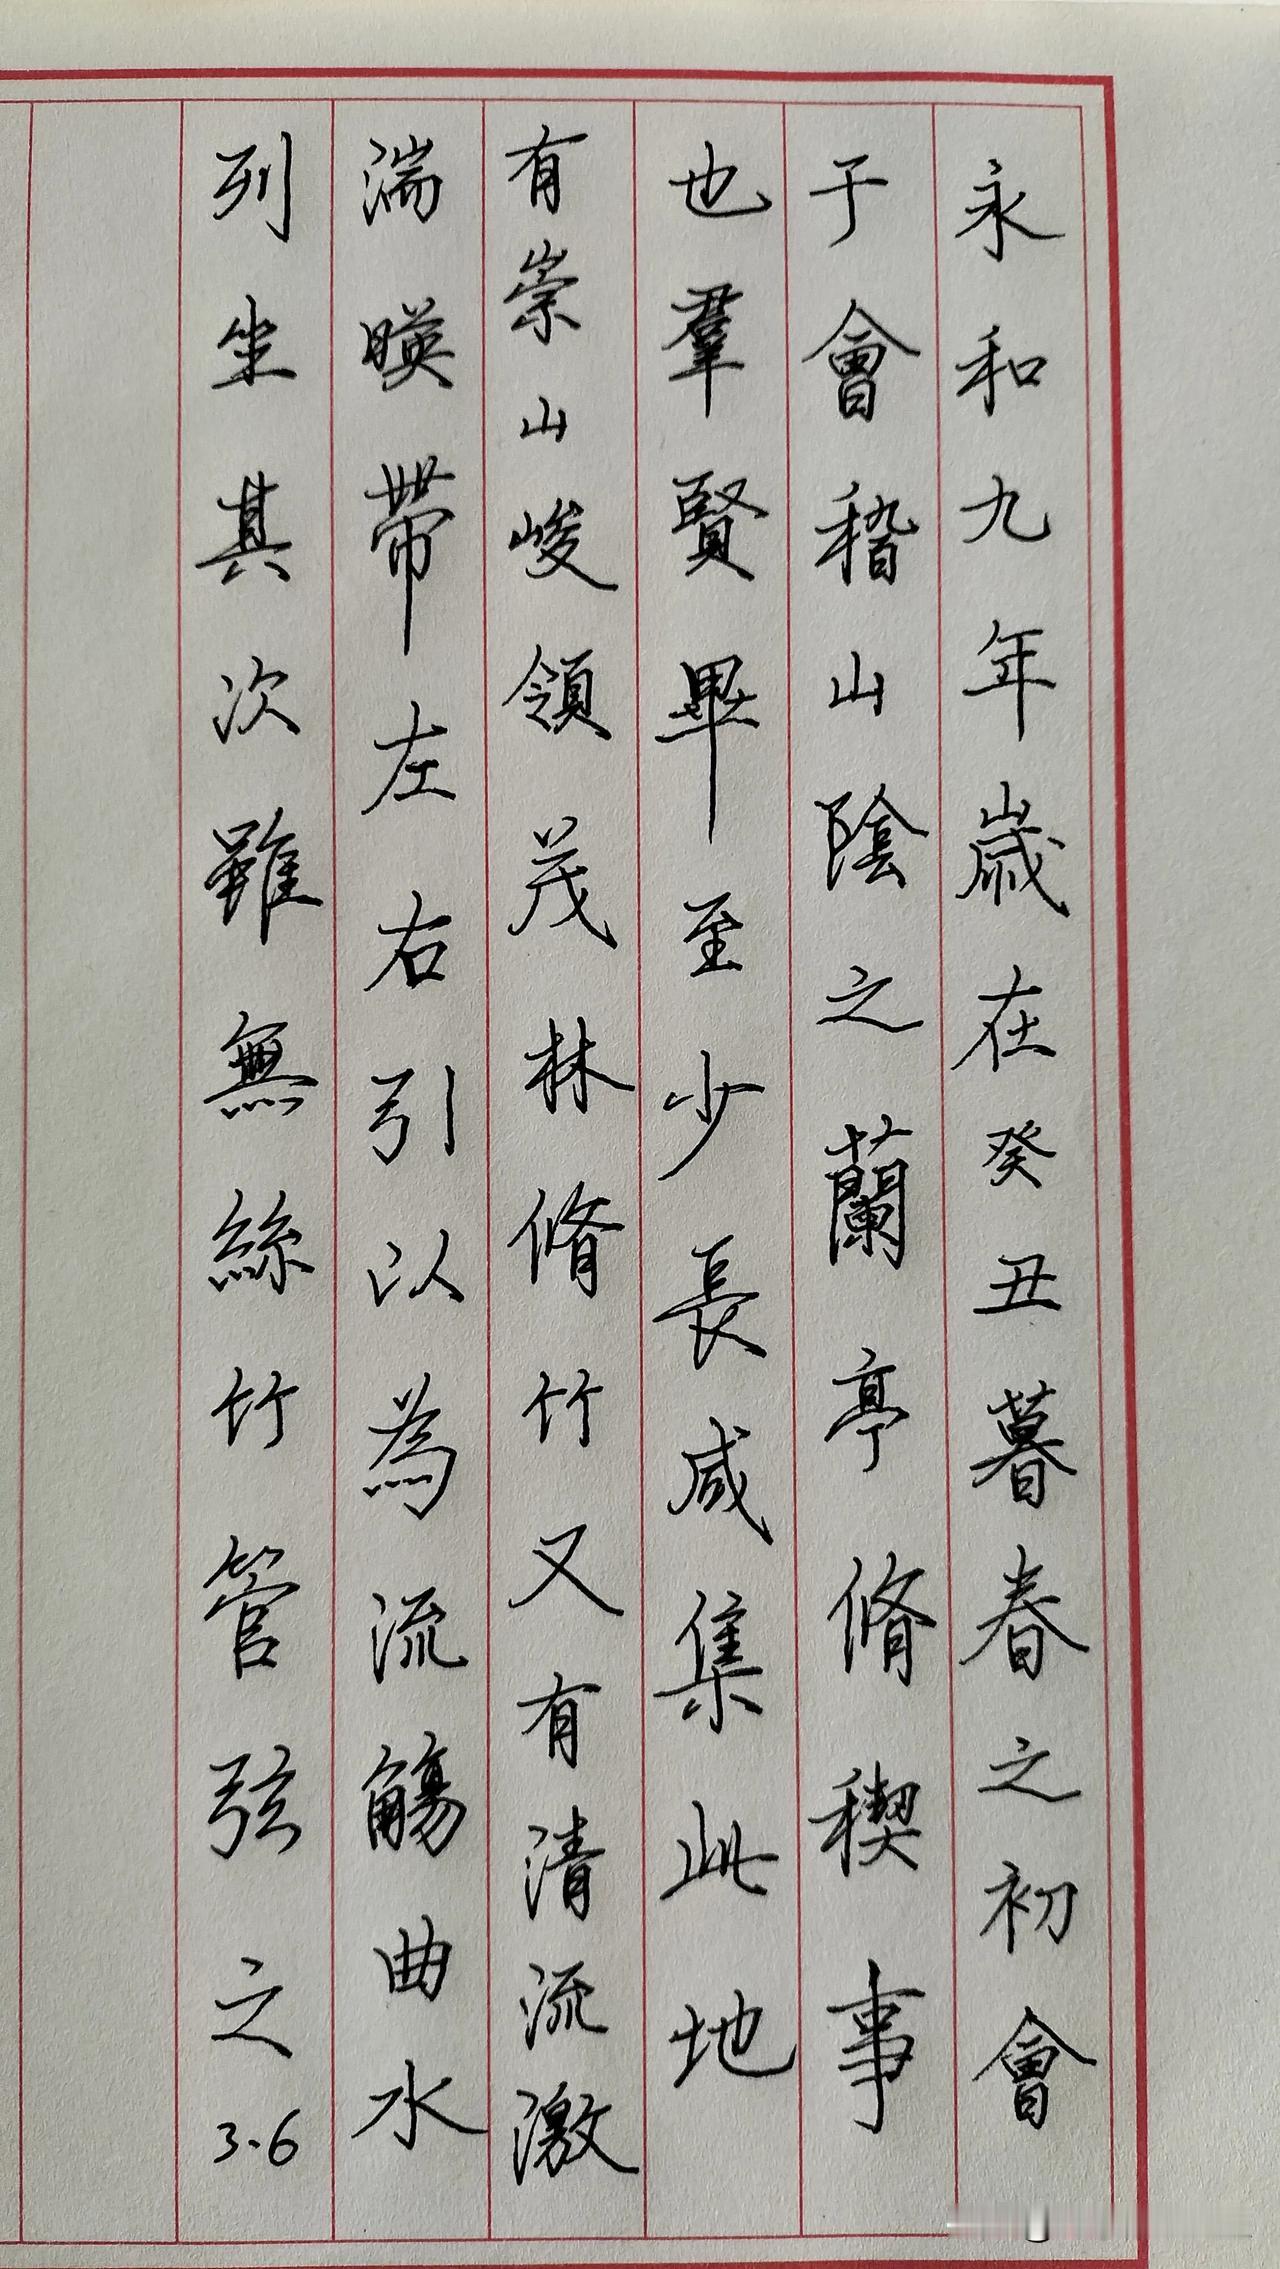 永和九年歲在癸丑暮春之初會
于會稽山陰之蘭亭脩稧事
也羣賢畢至少長咸集此地
有崇山峻領茂林脩竹又有清流激
湍暎帶左右引以為流觴曲水
列坐其次雖無絲竹管弦之
3.6